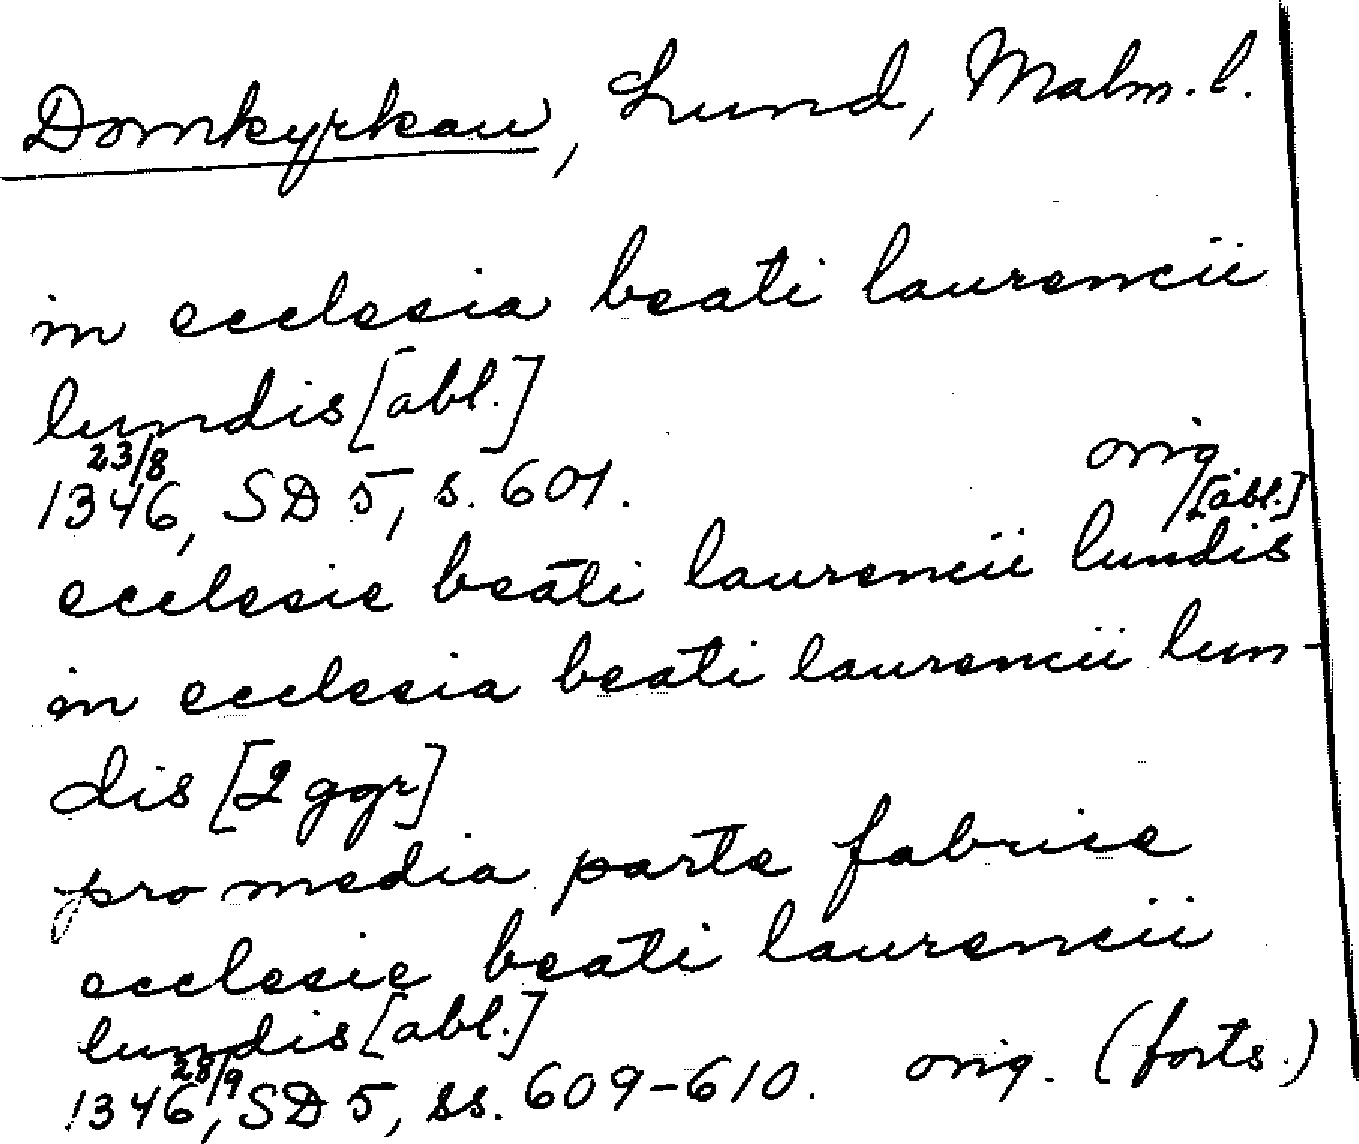 Domkyrkan, Lund, Malm. l.
in ecclesia beati laurencii
lundis [abl.]
1346 23/8, SD 5, s. 601. orig.
ecclesie beati laurencii lundis [abl.]
in ecclesia beati laurencii lun-
dis [2 ggr]
pro media parte fabrice
ecclesie beati laurencii
lundis [abl.]
1346 28/9, SD 5, ss. 609-610. orig. (forts.)